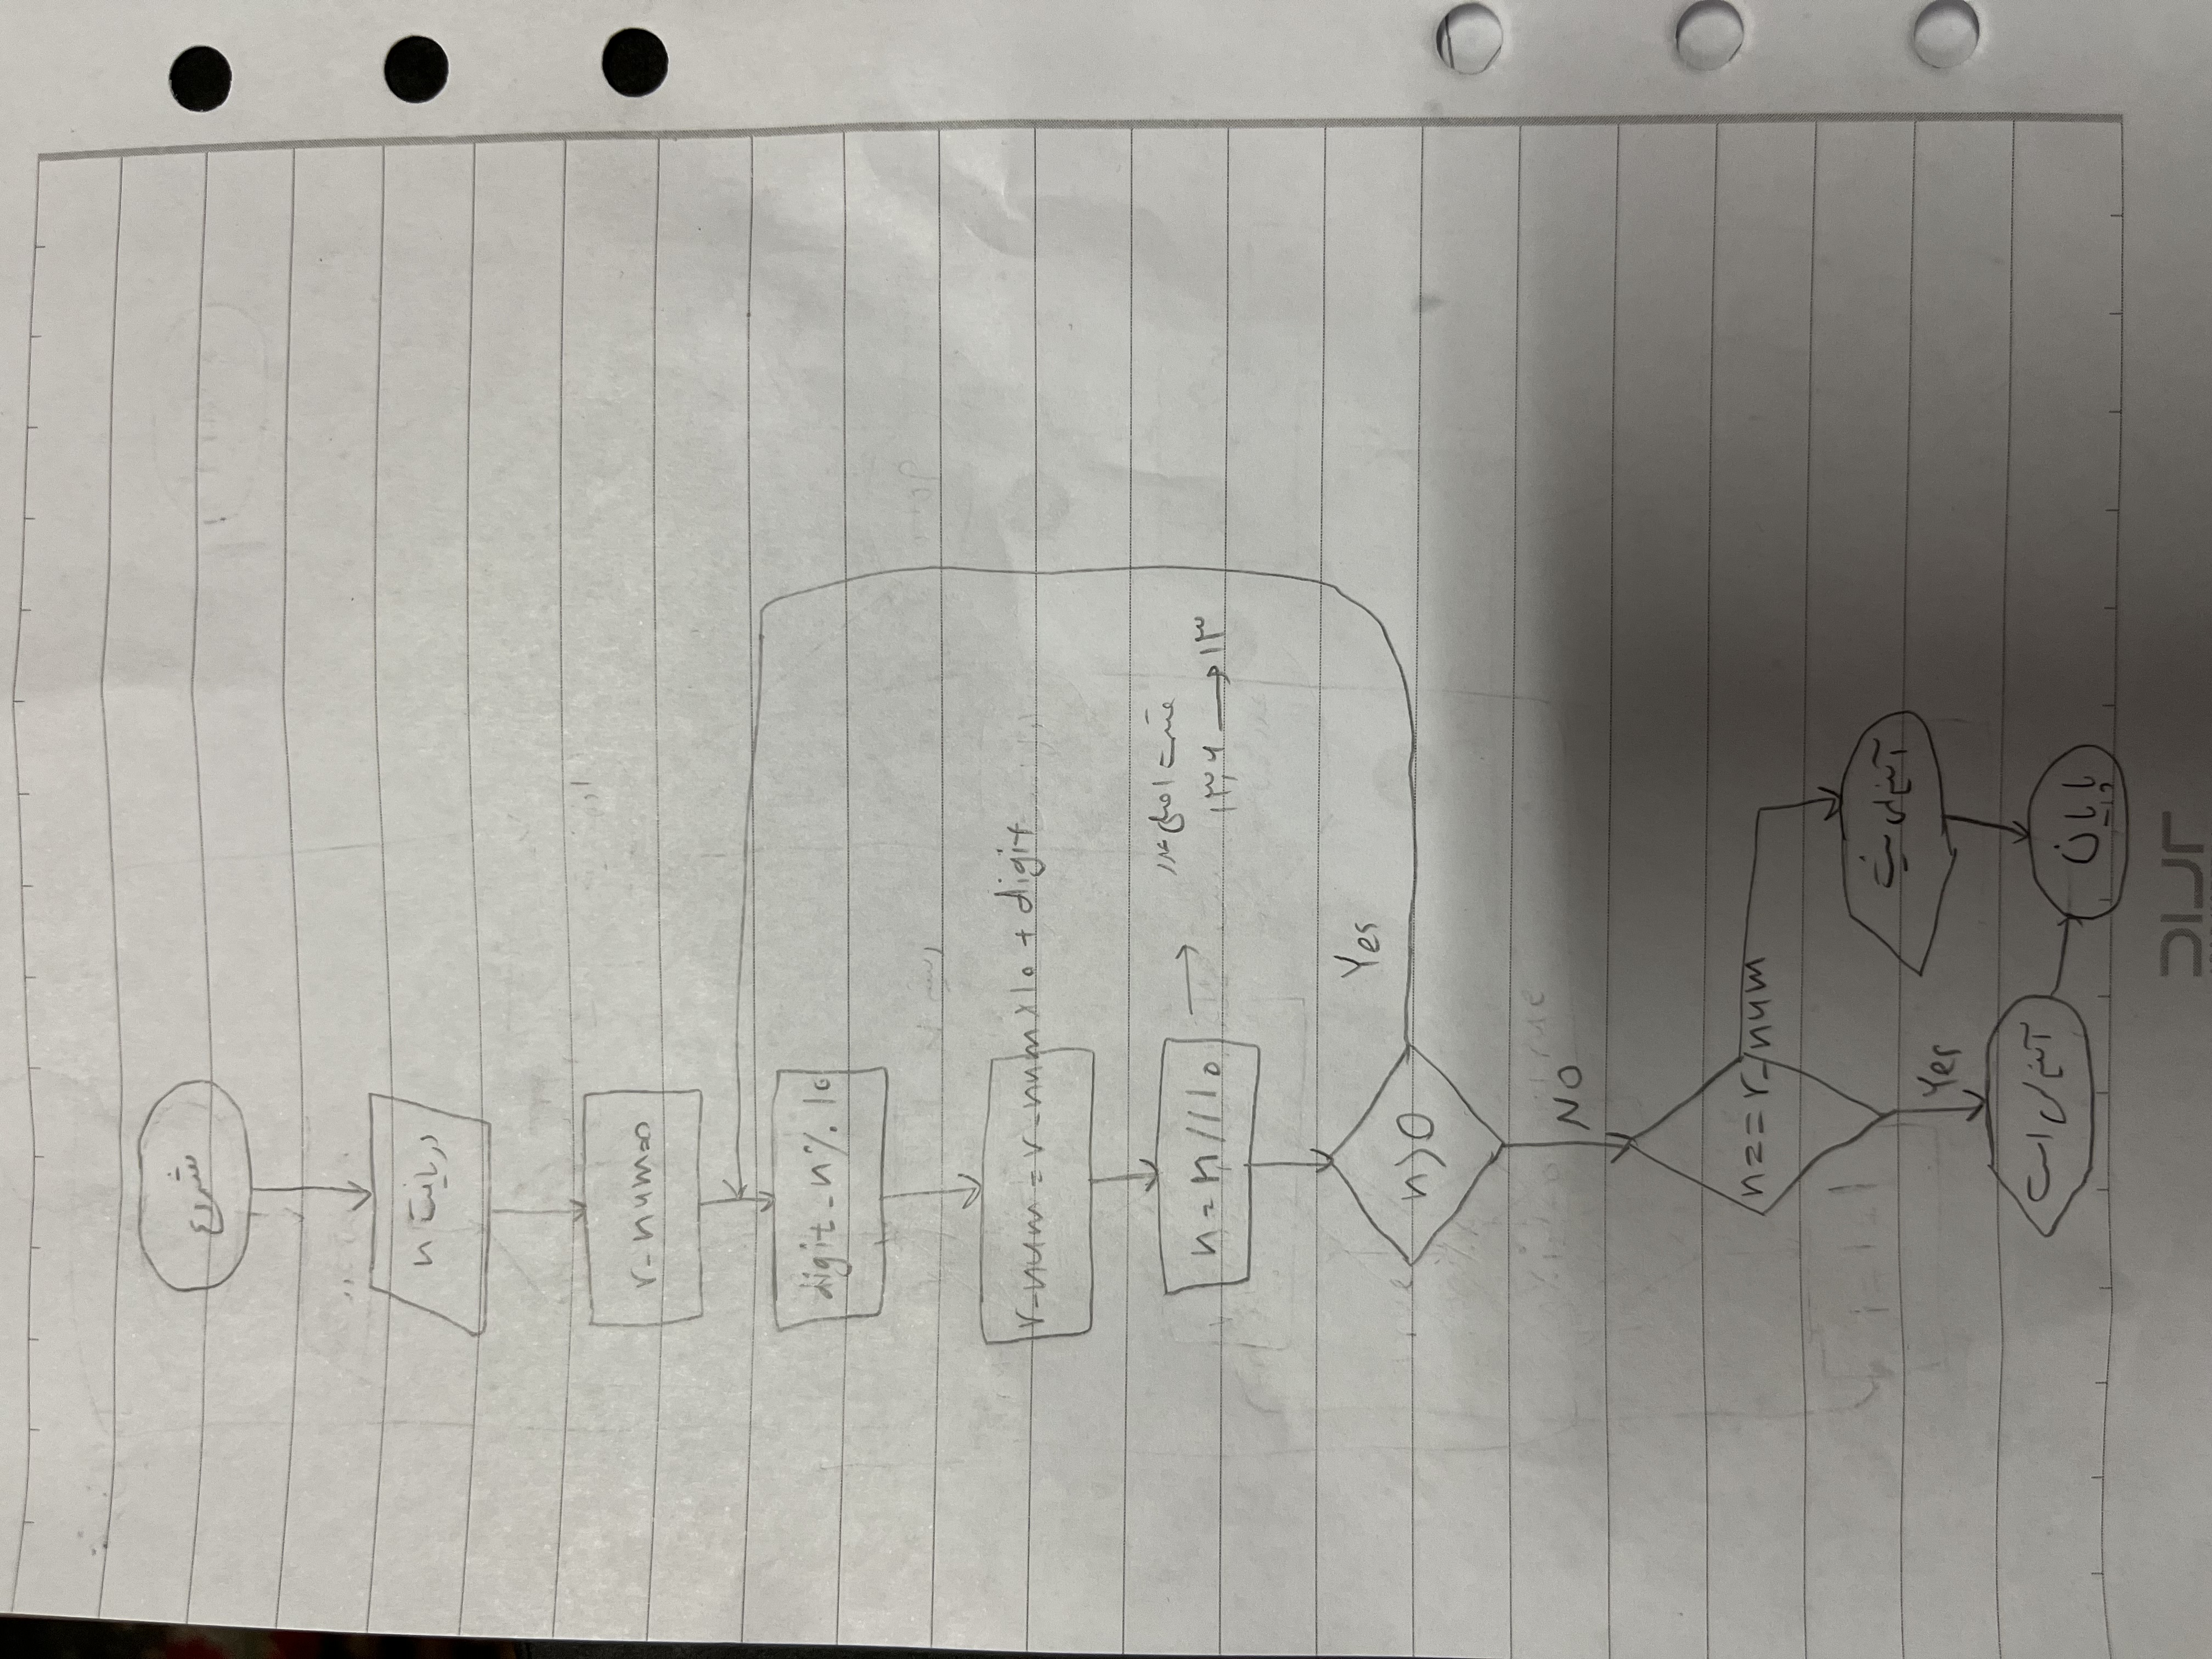 شروع
دریافت n
r-num=0
digit = n % 10
r-num = r-num x 10 + digit
n = n // 10 → قسمت اصلی عدد
۱۳,۶ → ۱۳
n > 0
Yes
NO
n == r-num
آئینه‌ای نیست
Yes
آئینه‌ای است
پایان